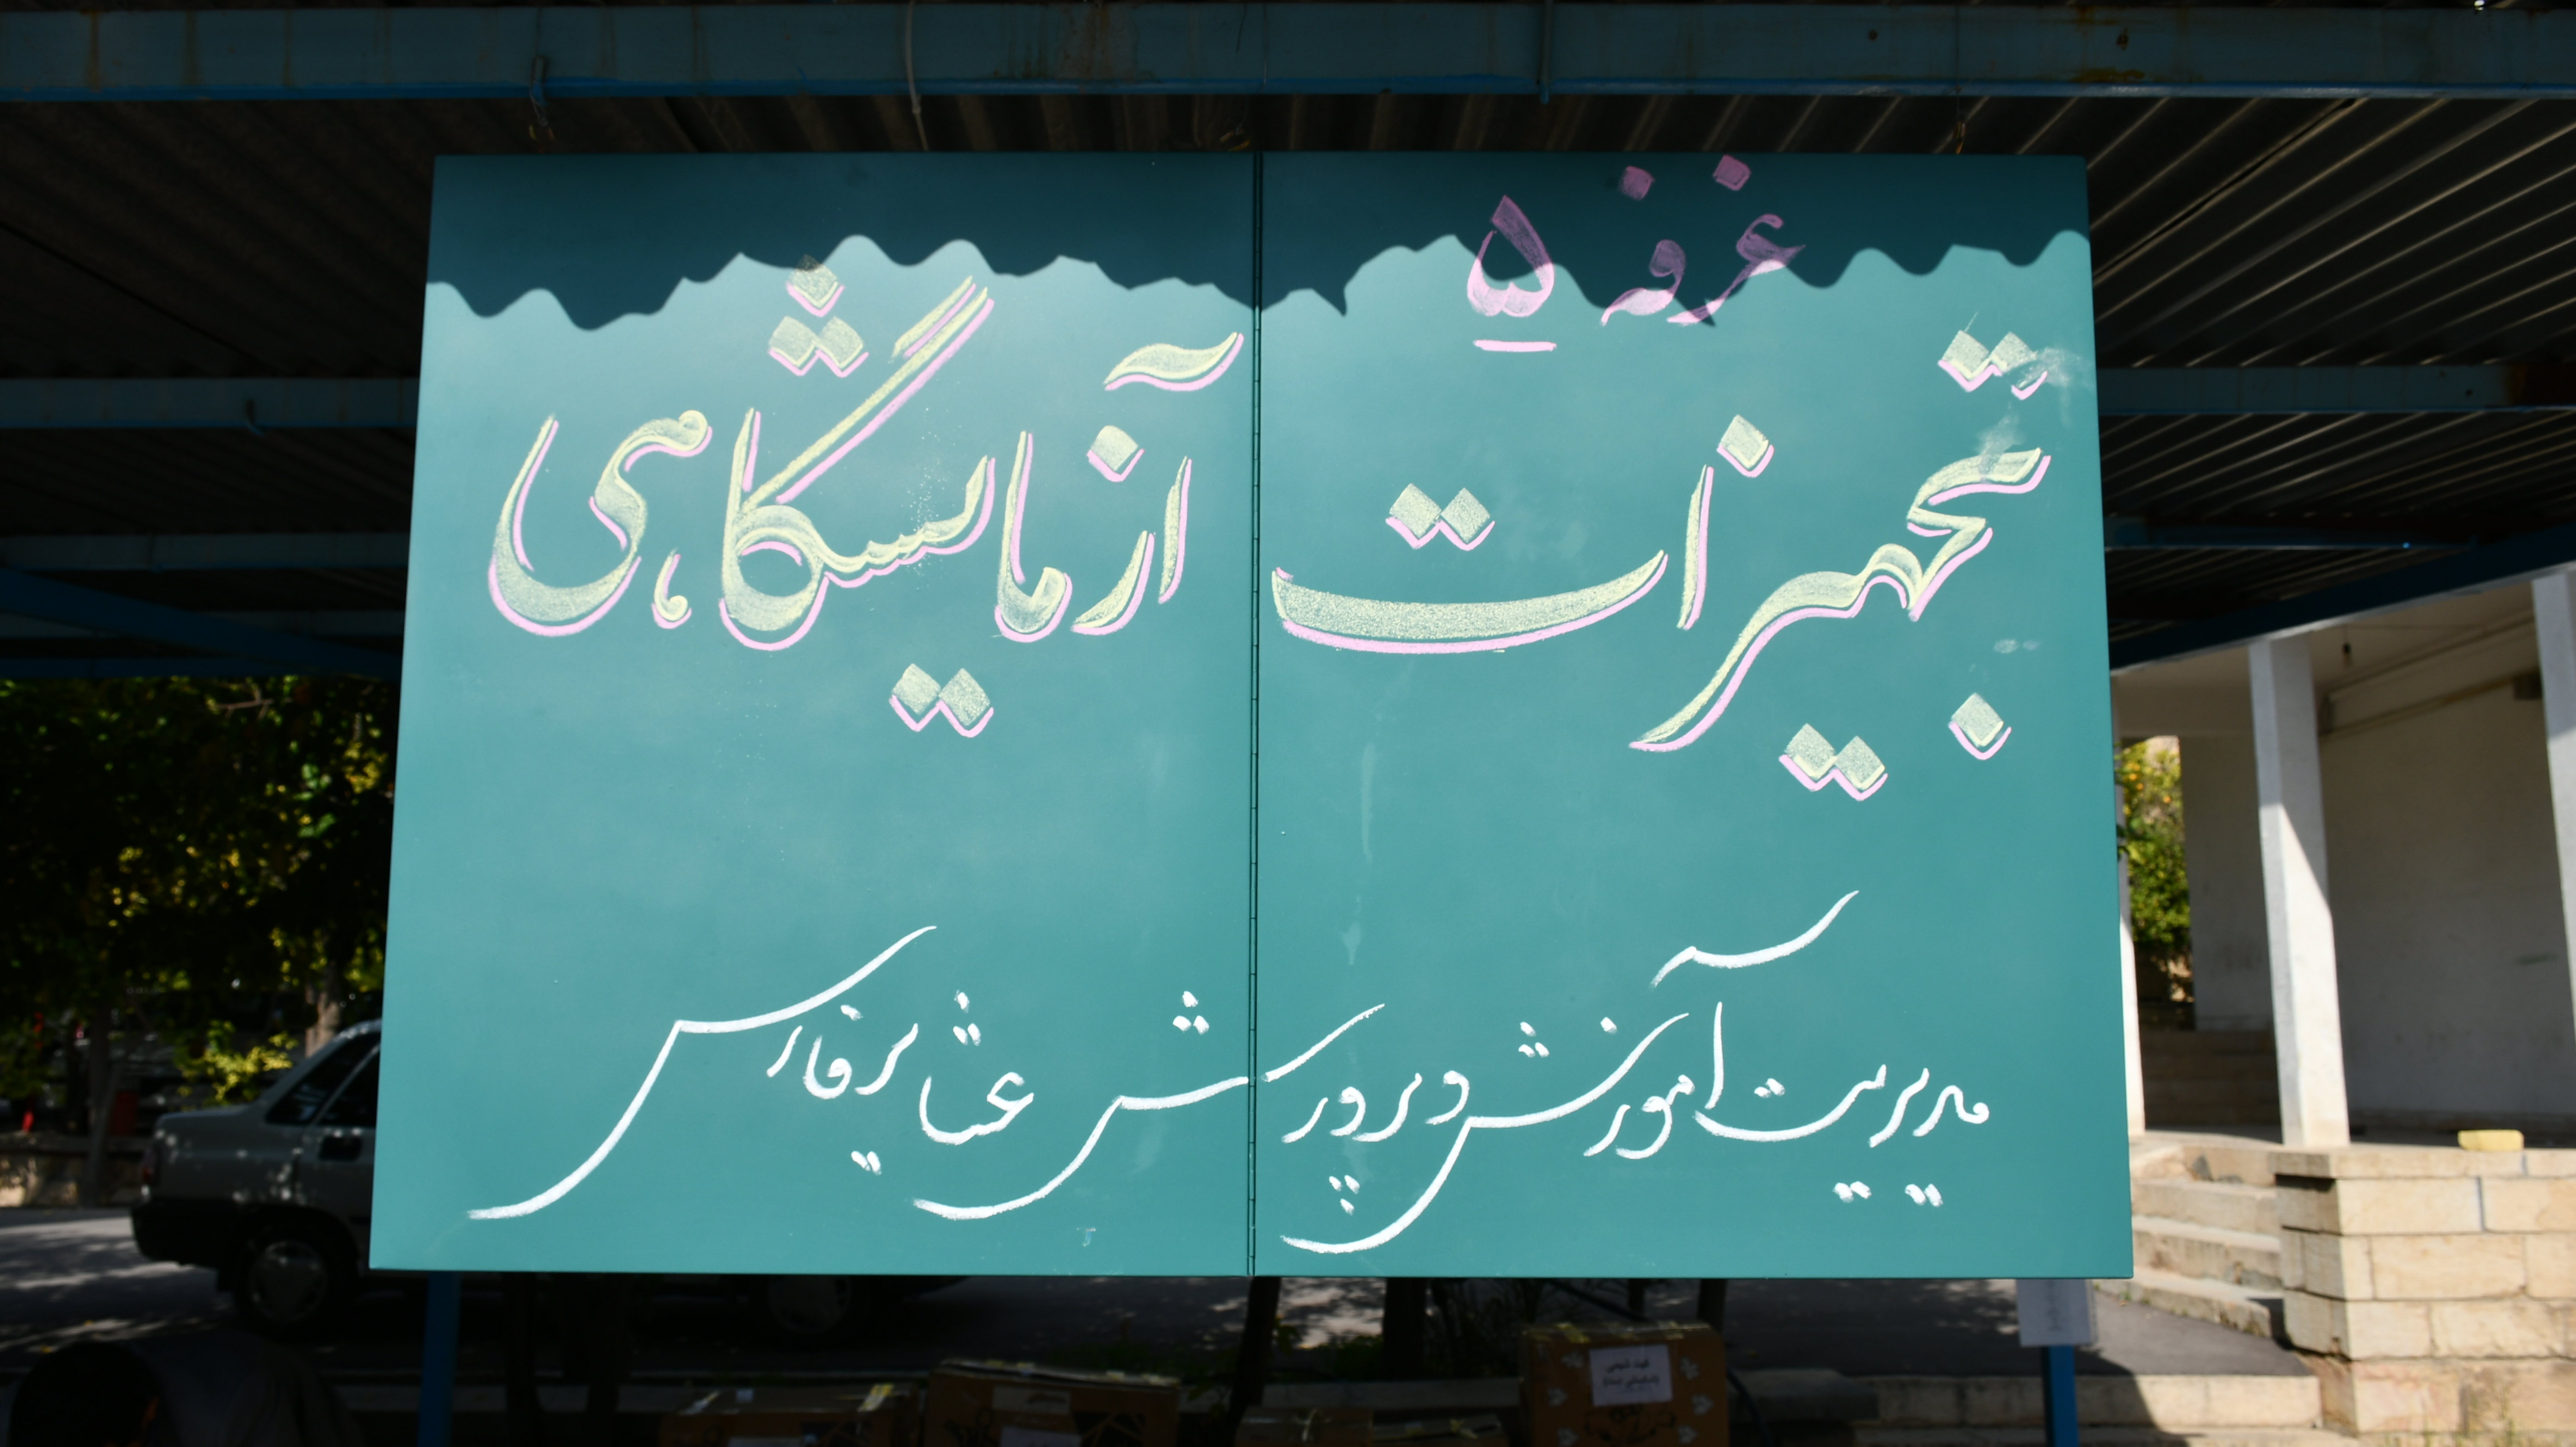 غرفه ۵
تجهیزات آزمایشگاهی
مدیریت آموزش و پرورش عشایر فارس